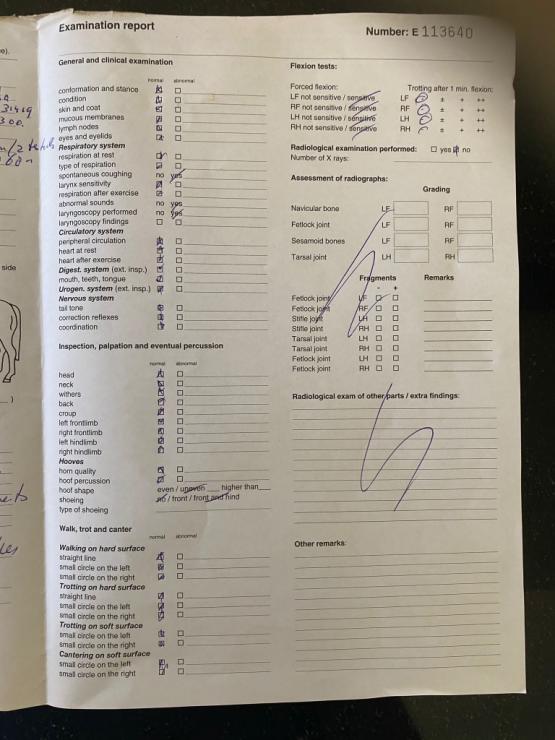 Examination report
Number: E 113640
General and clinical examination
normal abnormal
conformation and stance
condition
skin and coat
mucous membranes
lymph nodes
eyes and eyelids
Respiratory system
respiration at rest
type of respiration
spontaneous coughing no yes
larynx sensitivity
respiration after exercise
abnormal sounds no yes
laryngoscopy performed no yes
laryngoscopy findings
Circulatory system
peripheral circulation
heart at rest
heart after exercise
Digest. system (ext. insp.)
mouth, teeth, tongue
Urogen. system (ext. insp.)
Nervous system
tail tone
correction reflexes
coordination
Inspection, palpation and eventual percussion
normal abnormal
head
neck
withers
back
croup
left frontlimb
right frontlimb
left hindlimb
right hindlimb
Hooves
horn quality
hoof percussion
hoof shape even / uneven ___ higher than ___
shoeing no / front / front and hind
type of shoeing
Walk, trot and canter
normal abnormal
Walking on hard surface
straight line
small circle on the left
small circle on the right
Trotting on hard surface
straight line
small circle on the left
small circle on the right
Trotting on soft surface
small circle on the left
small circle on the right
Cantering on soft surface
small circle on the left
small circle on the right
Flexion tests:
Forced flexion: Trotting after 1 min. flexion:
LF not sensitive / sensitive LF - ± + ++
RF not sensitive / sensitive RF - ± + ++
LH not sensitive / sensitive LH - ± + ++
RH not sensitive / sensitive RH - ± + ++
Radiological examination performed: yes no
Number of X rays:
Assessment of radiographs:
Grading
Navicular bone LF RF
Fetlock joint LF RF
Sesamoid bones LF RF
Tarsal joint LH RH
Fragments Remarks
- +
Fetlock joint LF
Fetlock joint RF
Stifle joint LH
Stifle joint RH
Tarsal joint LH
Tarsal joint RH
Fetlock joint LH
Fetlock joint RH
Radiological exam of other parts / extra findings:
Other remarks:
side